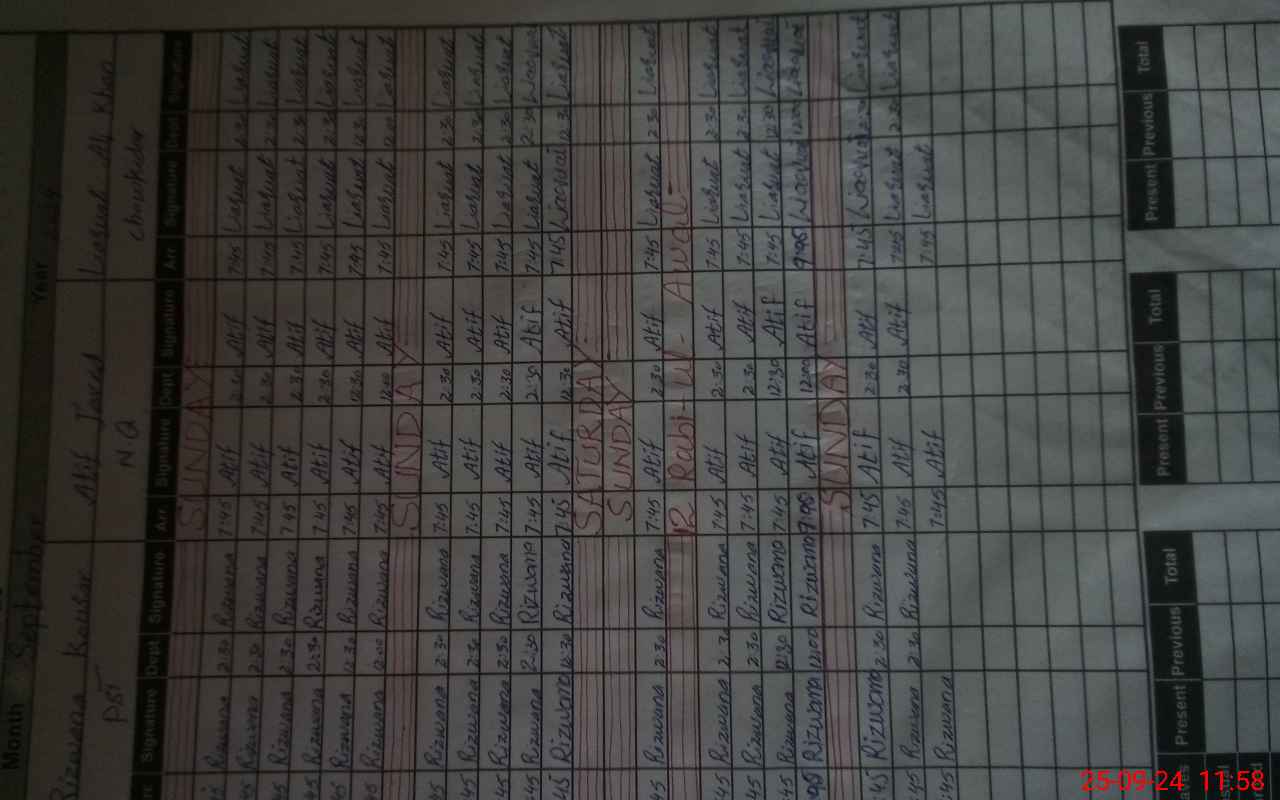 Month September Year
Rizwana Kousar Atif Javed Liaquat Ali Khan
PST N.Q Chowkidar
Signature Dept Signature Arr. Signature Dept Signature Arr Signature Dept Signature
SUNDAY
Rizwana 2:30 Rizwana 7:45 Atif 2:30 Atif 7:45 Liaquat 2:30 Liaquat
Rizwana 2:30 Rizwana 7:45 Atif 2:30 Atif 7:45 Liaquat 2:30 Liaquat
Rizwana 2:30 Rizwana 7:45 Atif 2:30 Atif 7:45 Liaquat 2:30 Liaquat
Rizwana 2:30 Rizwana 7:45 Atif 2:30 Atif 7:45 Liaquat 2:30 Liaquat
Rizwana 12:30 Rizwana 7:45 Atif 12:30 Atif 7:45 Liaquat 12:30 Liaquat
Rizwana 12:00 Rizwana 7:45 Atif 12:00 Atif 7:45 Liaquat 12:00 Liaquat
SUNDAY
:45 Rizwana 2:30 Rizwana 7:45 Atif 2:30 Atif 7:45 Liaquat 2:30 Liaquat
:45 Rizwana 2:30 Rizwana 7:45 Atif 2:30 Atif 7:45 Liaquat 2:30 Liaquat
:45 Rizwana 2:30 Rizwana 7:45 Atif 2:30 Atif 7:45 Liaquat 2:30 Liaquat
:45 Rizwana 2:30 Rizwana 7:45 Atif 2:30 Atif 7:45 Liaquat 2:30 Liaquat
:45 Rizwana 12:30 Rizwana 7:45 Atif 12:30 Atif 7:45 Liaquat 12:30 Liaquat
SATURDAY
SUNDAY
:45 Rizwana 2:30 Rizwana 7:45 Atif 2:30 Atif 7:45 Liaquat 2:30 Liaquat
12 Rabi-ul-Awal
:45 Rizwana 2:30 Rizwana 7:45 Atif 2:30 Atif 7:45 Liaquat 2:30 Liaquat
:45 Rizwana 2:30 Rizwana 7:45 Atif 2:30 Atif 7:45 Liaquat 2:30 Liaquat
:45 Rizwana 12:30 Rizwana 7:45 Atif 12:30 Atif 7:45 Liaquat 12:30 Liaquat
Rizwana 12:00 Rizwana Atif 12:00 Atif Liaquat 12:00 Liaquat
SUNDAY
:45 Rizwana 2:30 Rizwana 7:45 Atif 2:30 Atif 7:45 Liaquat 2:30 Liaquat
:45 Rizwana 2:30 Rizwana 7:45 Atif 2:30 Atif 7:45 Liaquat 2:30 Liaquat
:45 Rizwana 7:45 Atif 7:45 Liaquat
Present Previous Total Present Previous Total Present Previous Total
25-09-24 11:58